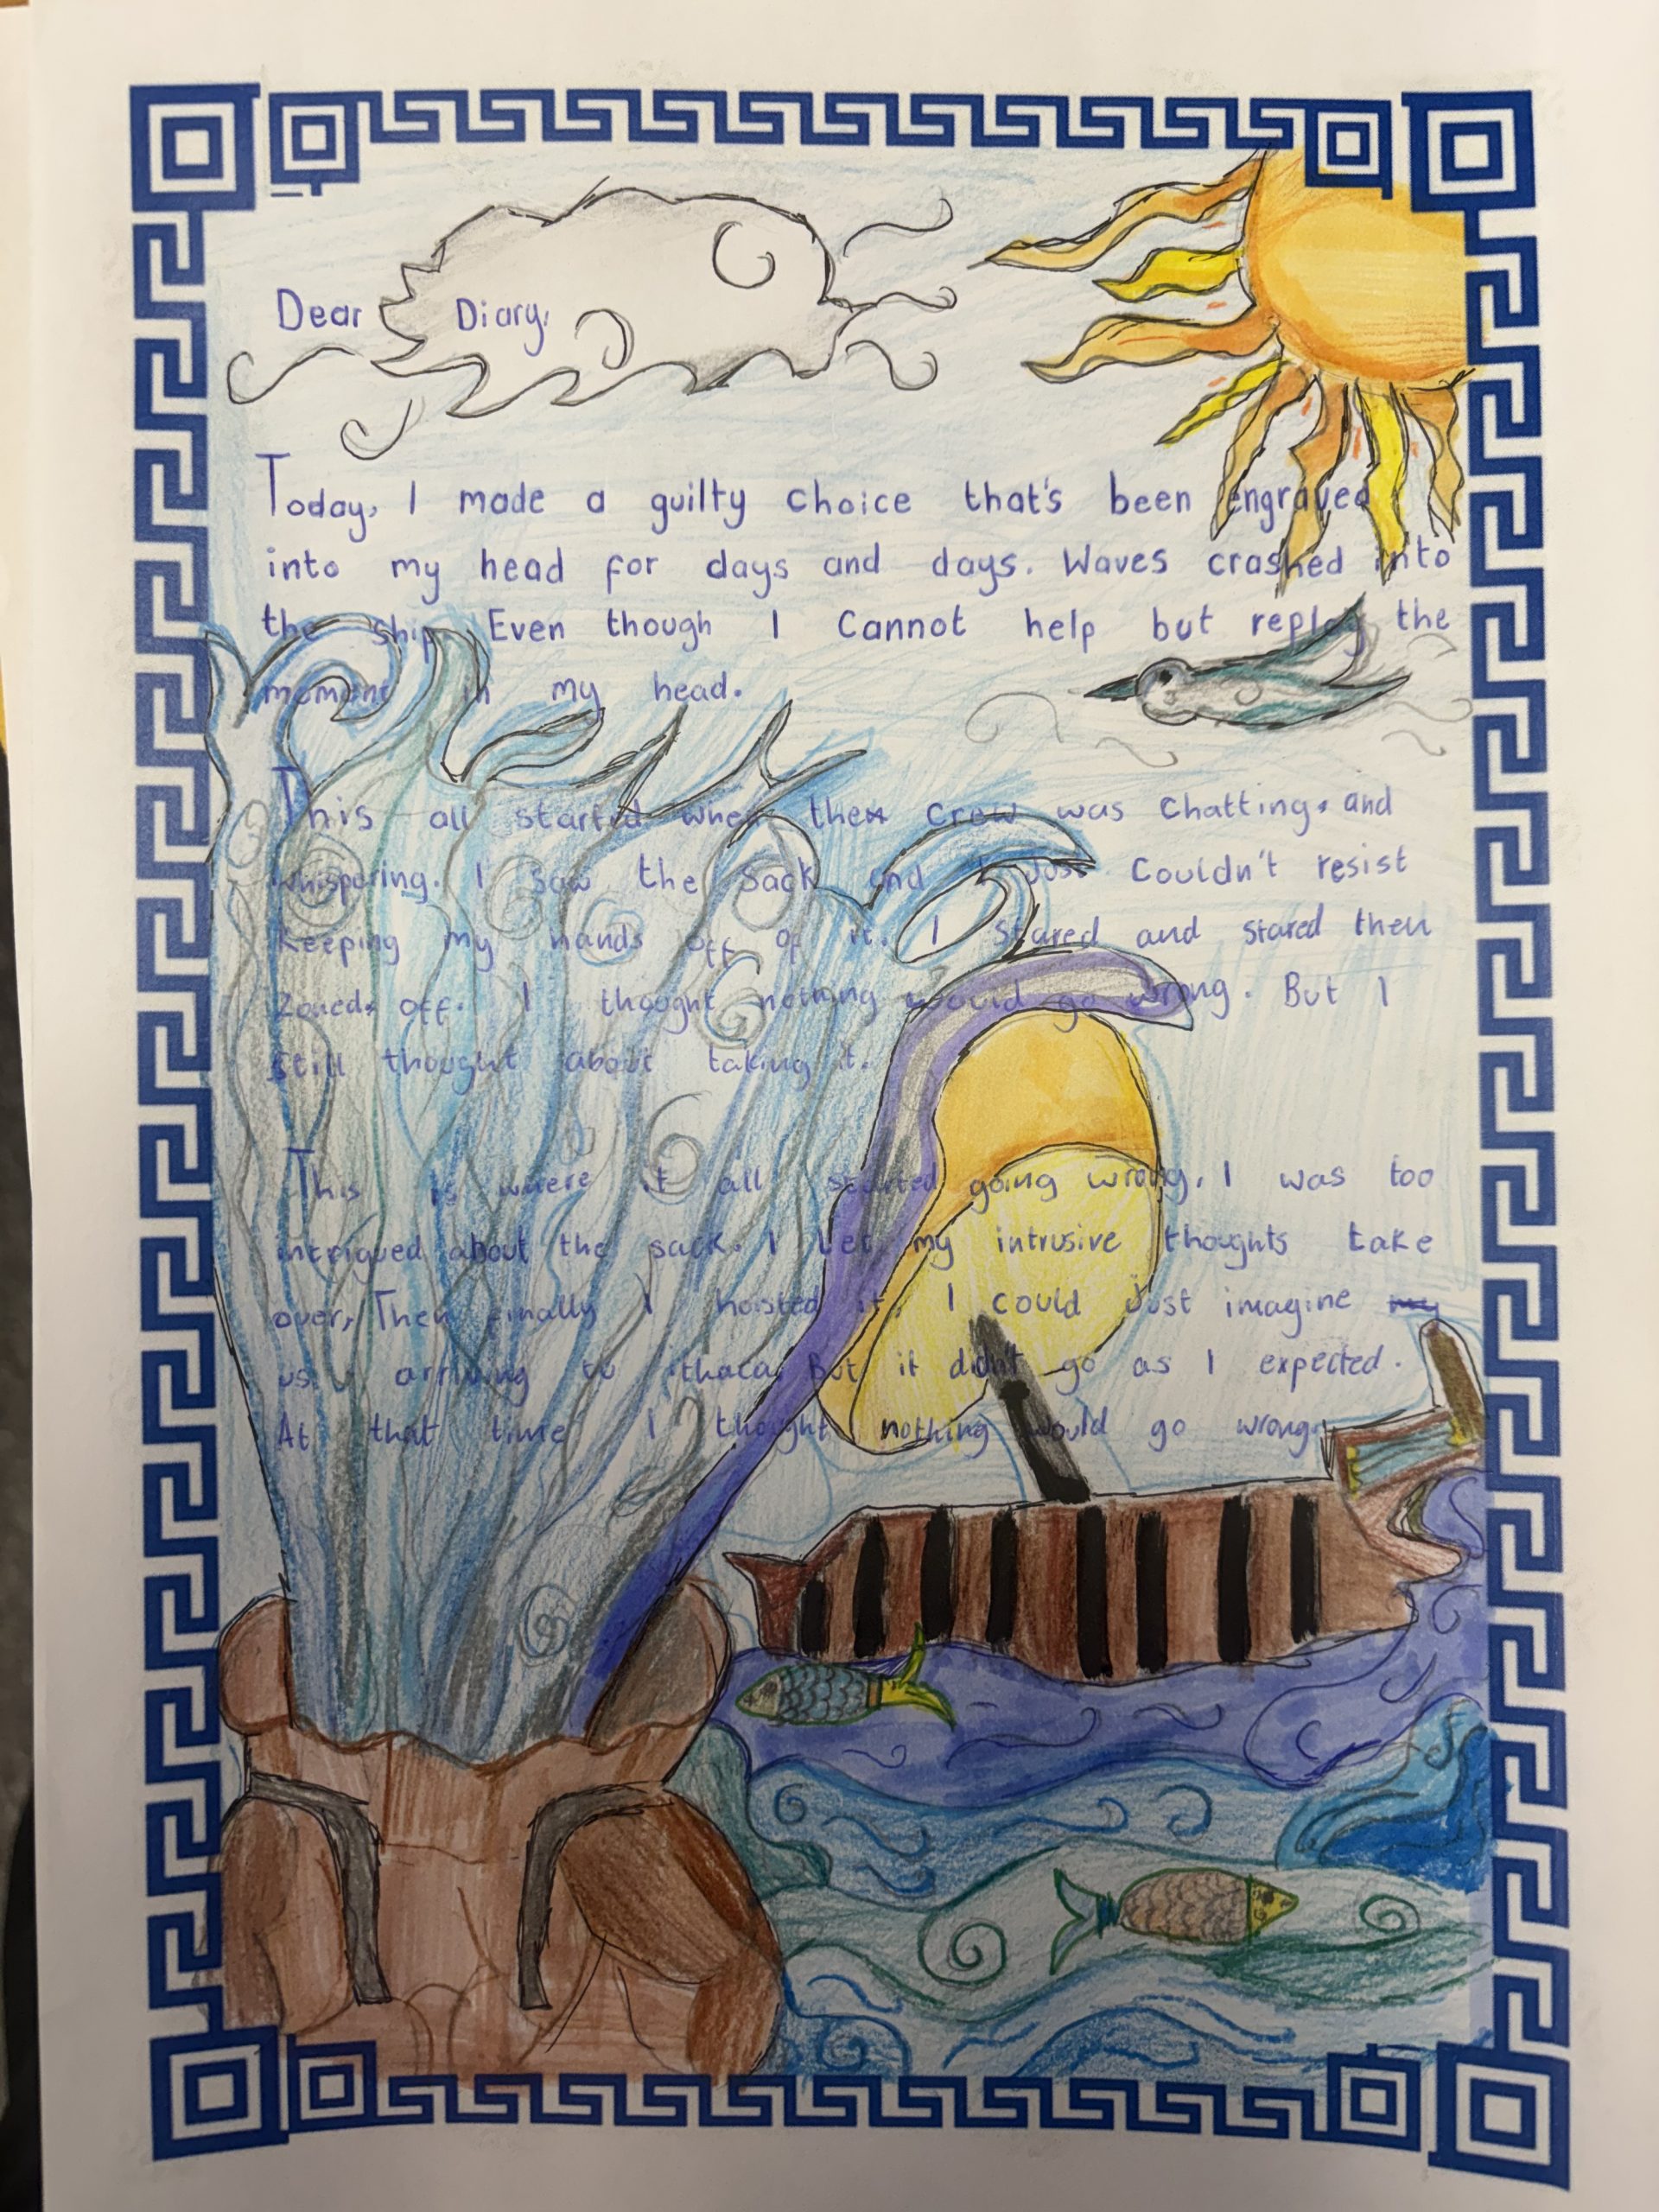 Dear Diary,
Today, I made a guilty choice that's been engraved
into my head for days and days. Waves crashed into
the ship. Even though I cannot help but replay the
moment in my head.
This all started when the crew was chatting, and
whispering. I saw the sack and I just couldn't resist
keeping my hands off of it. I stared and stared then
zoned off. I thought nothing would go wrong. But I
still thought about taking it.
This is where it all started going wrong. I was too
intrigued about the sack. I let my intrusive thoughts take
over, Then finally I hoisted it. I could just imagine my
us arriving to ithaca, But it didn't go as I expected.
At that time I thought nothing would go wrong.